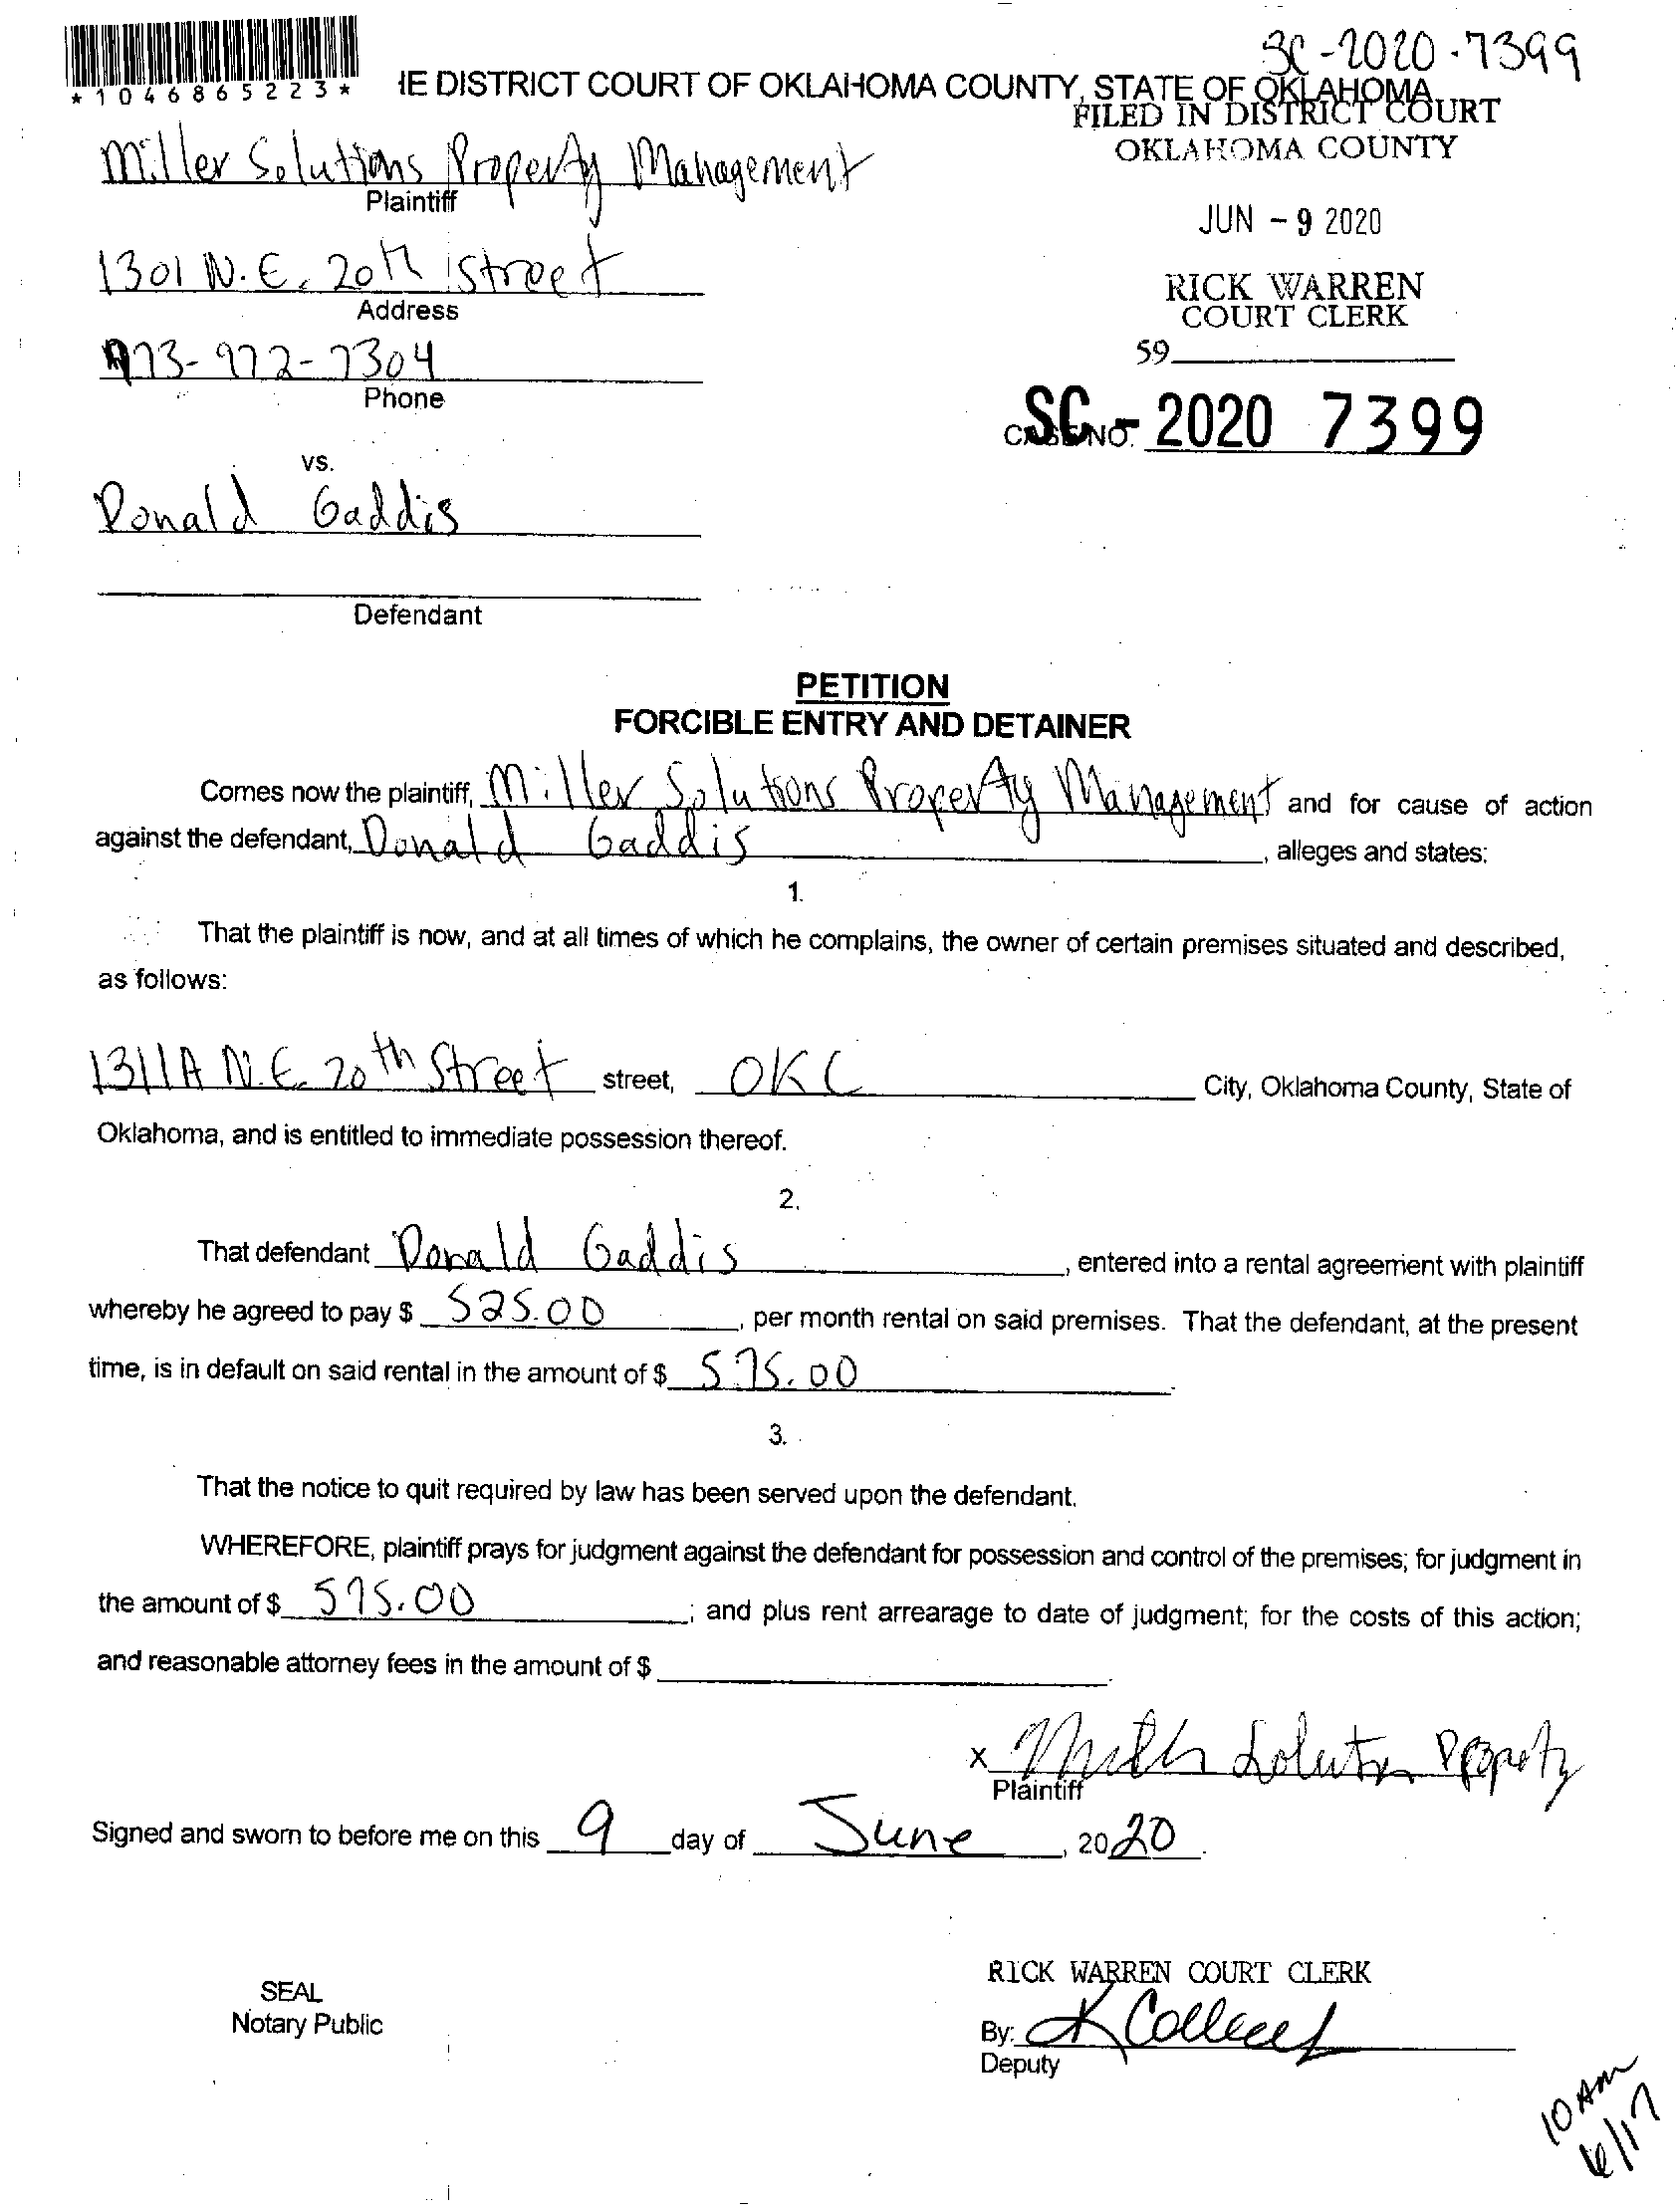 SC-2020-7399
*1046865223*
HE DISTRICT COURT OF OKLAHOMA COUNTY, STATE OF OKLAHOMA
FILED IN DISTRICT COURT
OKLAHOMA COUNTY
Miller Solutions Property Management
Plaintiff
JUN - 9 2020
1301 N.E. 20th Street
Address
RICK WARREN
COURT CLERK
973-972-7304
Phone
59
CASE NO. SC - 2020 7399
vs.
Donald Gaddis
Defendant
PETITION
FORCIBLE ENTRY AND DETAINER
Comes now the plaintiff, Miller Solutions Property Management and for cause of action
against the defendant, Donald Gaddis, alleges and states:
1.
That the plaintiff is now, and at all times of which he complains, the owner of certain premises situated and described,
as follows:
1311A N.E. 20th Street street, OKC City, Oklahoma County, State of
Oklahoma, and is entitled to immediate possession thereof.
2.
That defendant Donald Gaddis, entered into a rental agreement with plaintiff
whereby he agreed to pay $ 525.00, per month rental on said premises. That the defendant, at the present
time, is in default on said rental in the amount of $ 575.00.
3.
That the notice to quit required by law has been served upon the defendant.
WHEREFORE, plaintiff prays for judgment against the defendant for possession and control of the premises; for judgment in
the amount of $ 575.00; and plus rent arrearage to date of judgment; for the costs of this action;
and reasonable attorney fees in the amount of $.
x Miller Solution Property
Plaintiff
Signed and sworn to before me on this 9 day of June, 2020.
RICK WARREN COURT CLERK
SEAL
Notary Public
By: K
Deputy
10 AM
6/17